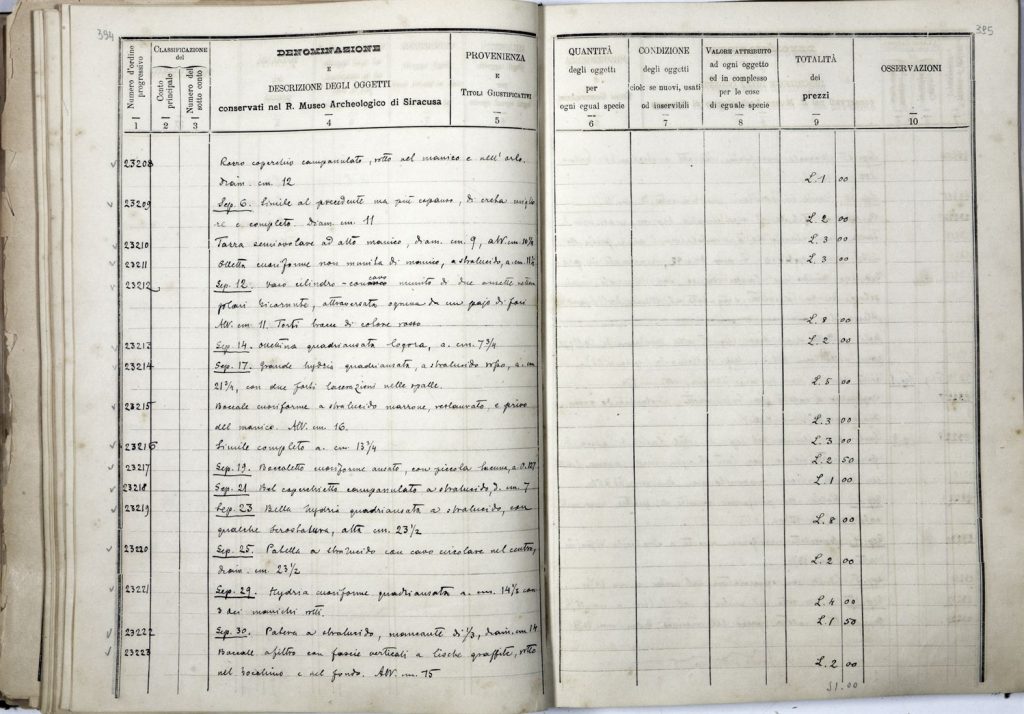 394
Numero d'ordine progressivo
CLASSIFICAZIONE del
Conto principale
Numero del sotto conto
DENOMINAZIONE
E
DESCRIZIONE DEGLI OGGETTI
conservati nel R. Museo Archeologico di Siracusa
PROVENIENZA
E
TITOLI GIUSTIFICATIVI
1 2 3 4 5
23208 Rozzo coperchio campanulato, rotto nel manico e nell'orlo.
diam. cm. 12
23209 Sep. 6. Simile al precedente ma più espanso, di creta
e completo. Diam. cm. 11
23210 Tazza semiovolare ad alto manico, diam. cm. 9, alt. cm.
23211 Olletta cuoriforme non munita di manico, a stralucido, a. cm.
23212 Sep. 12. Vaso cilindro-conico cavo munito di due ansette
attraversata ognuna da un pajo di fori
Alt. cm. 11. Forti tracce di colore rosso
23213 Sep. 14. Ollettina quadriansata logora, a. cm. 7 3/4
23214 Sep. 17. Grande hydria quadriansata, a stralucido rosso, a. cm
21 3/4, con due forti lacerazioni nelle spalle.
23215 Boccale cuoriforme a stralucido marrone, restaurato, e privo
del manico. Alt. cm. 16.
23216 Simile completo a. cm. 13 3/4
23217 Sep. 19. Boccaletto cuoriforme ansato, con piccola lacuna, a.
23218 Sep. 21 Bel coperchietto campanulato a stralucido, d. cm. 7
23219 Sep. 23 Bella hydria quadriansata a stralucido, con
qualche crostatura, alta cm. 23 1/2
23220 Sep. 25. Patella a stralucido con cavo circolare nel centro,
diam. cm. 23 1/2
23221 Sep. 29. Hydria cuoriforme quadriansata a. cm. con
3 dei manichi rotti
23222 Sep. 30. Patera a stralucido, mancante di 1/3, diam. cm. 14
23223 Boccale con fascie verticali a lische graffite, rotto
nel e nel fondo. Alt. cm. 15
385
QUANTITÀ
degli oggetti
per
ogni egual specie
CONDIZIONE
degli oggetti
cioè: se nuovi, usati
od inservibili
VALORE ATTRIBUITO
ad ogni oggetto
ed in complesso
per le cose
di eguale specie
TOTALITÀ
dei
prezzi
OSSERVAZIONI
6 7 8 9 10
L. 1 00
L. 2 00
L. 3 00
L. 3 00
L. 8 00
L. 2 00
L. 5 00
L. 3 00
L. 3 00
L. 2 50
L. 1 00
L. 8 00
L. 2 00
L. 4 00
L. 1 50
L. 2 00
51.00